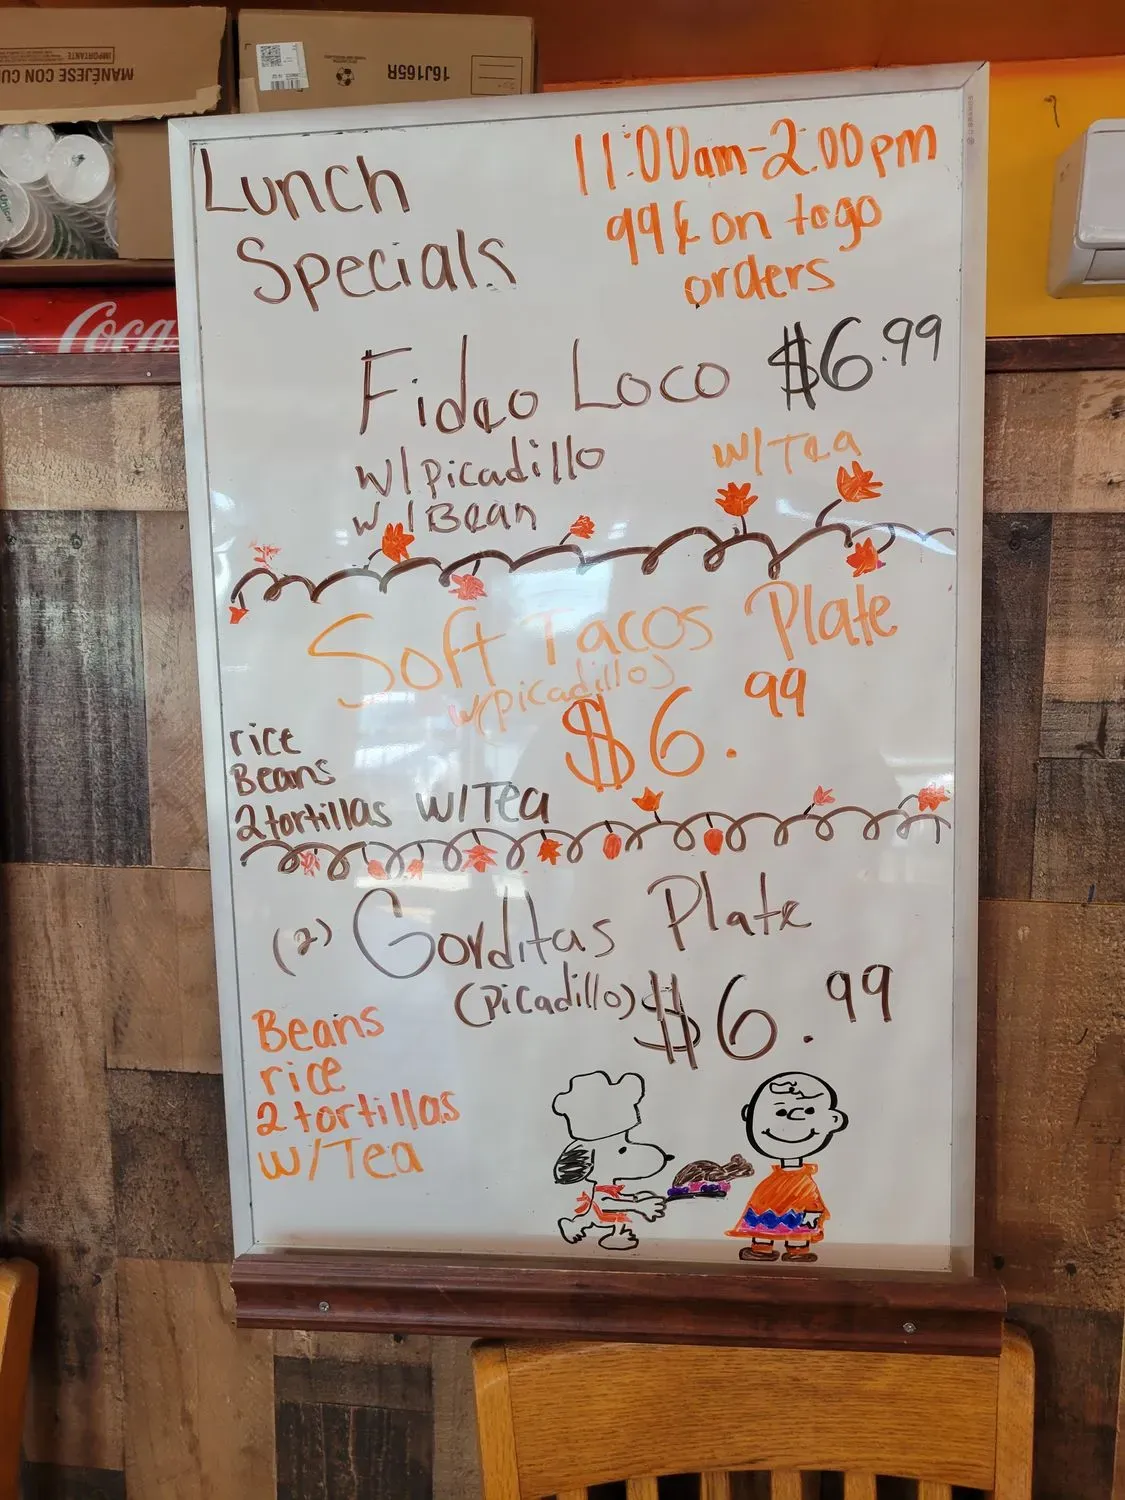 MANÉJESE CON CUI
IMPORTANTE
16J165R
Coca
Lunch
Specials
11:00am-2:00pm
99¢ on togo
orders
Fideo Loco $6.99
w/picadillo
w/Bean
w/Tea
Soft Tacos Plate
w(picadillo)
$6.99
rice
Beans
2 tortillas w/Tea
(2) Gorditas Plate
(Picadillo) $6.99
Beans
rice
2 tortillas
w/Tea